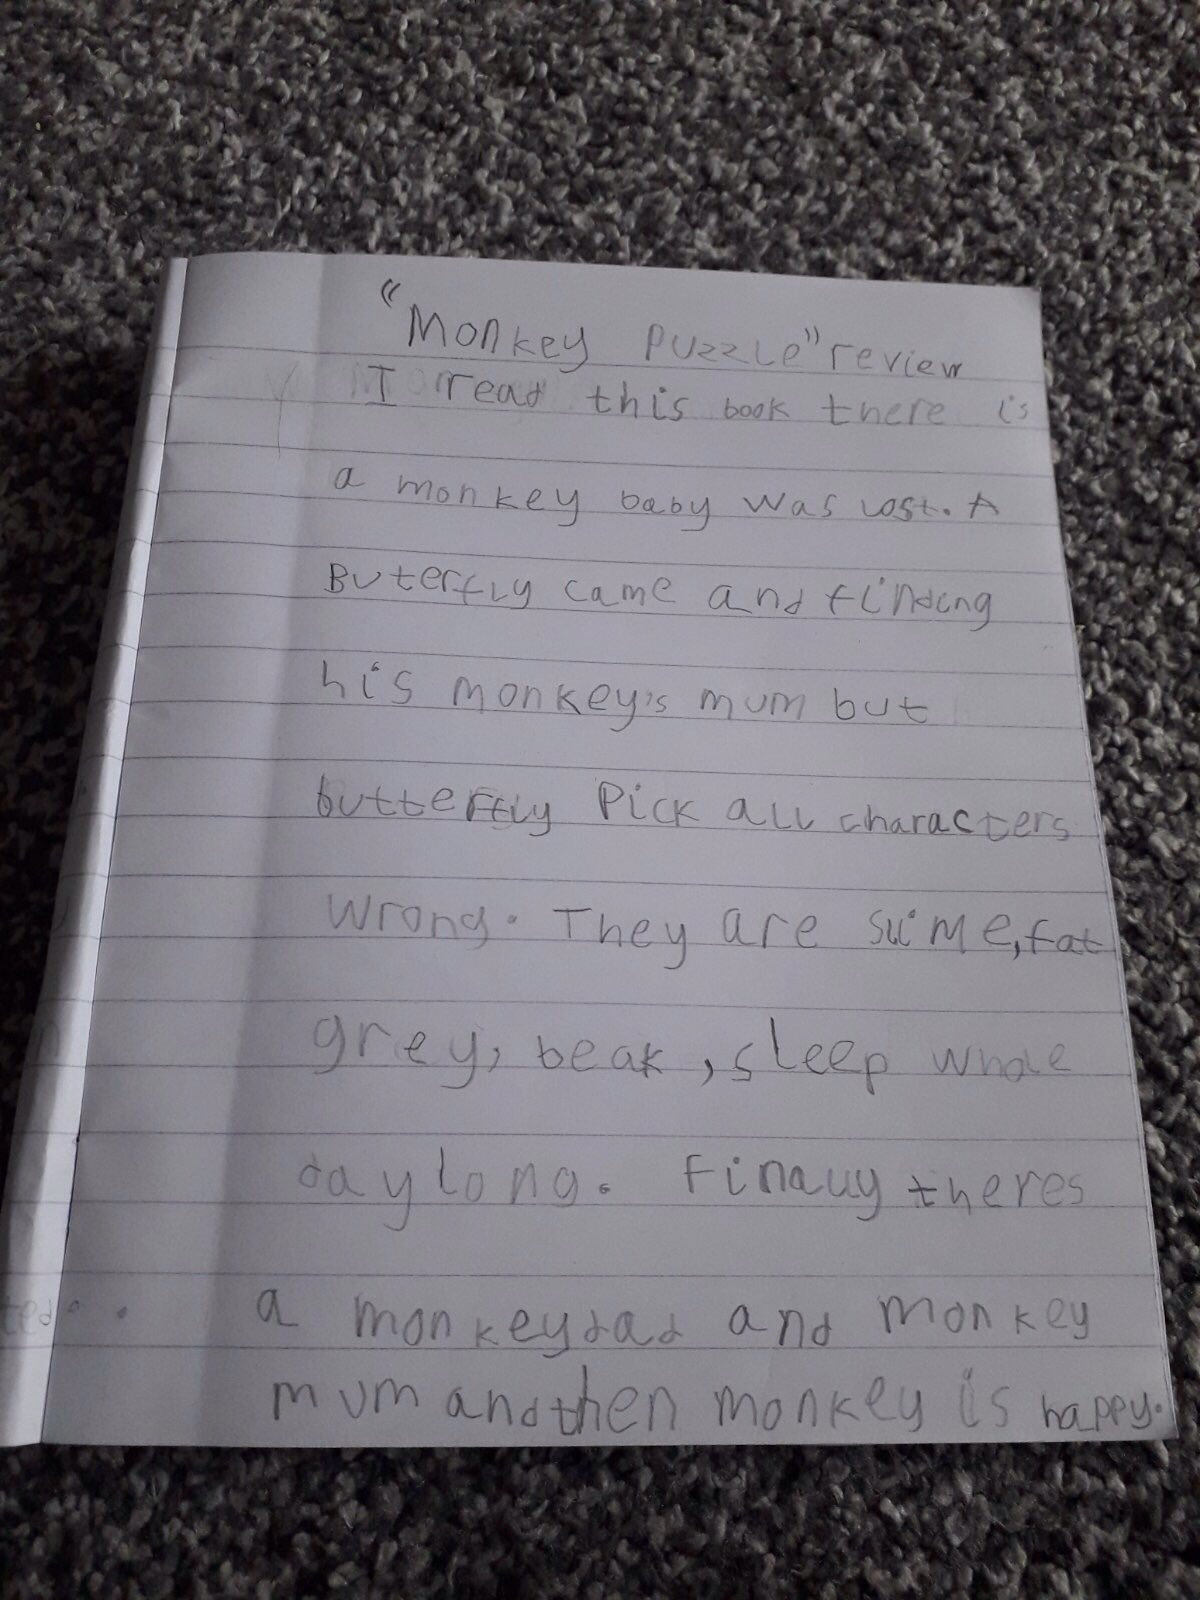 "Monkey Puzzle" review
I read this book there is
a monkey baby was lost. A
Buterfly came and finding
his monkey's mum but
butterfly Pick all characters
wrong. They are slime, fat
grey, beak, sleep whole
day long. Finally theres
a monkey dad and monkey
mum and then monkey is happy.